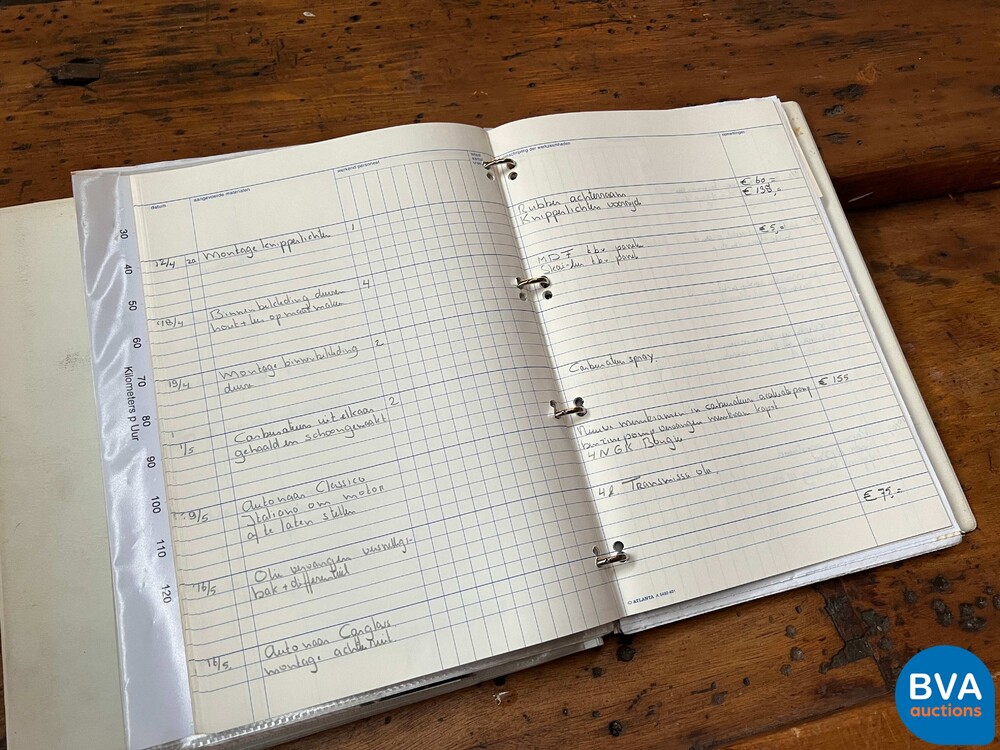 datum
aangevoerde materialen
werkend personeel
30
40
50
60
70
80
90
100
110
120
Kilometers p Uur
12/4 Montage knipperlichten 1
18/4 Binnenbekleding deuren 4
hout + leer op maat maken
19/4 Montage binnenbekleding 2
deuren
1/5 Carburateurs uit elkaar 2
gehaald en schoongemaakt
9/5 Auto naar Classico
Italiano om motor
af te laten stellen
16/5 Olie vervangen versnellings-
bak + differentieel
16/5. Auto naar Carglass
montage achterruit
der werkzaamheden
opmerkingen
Rubber achterraam € 60,=
Knipperlichten voorzijde € 198,=
€ 5,=
MDF t.b.v. panelen
Skai-leer t.b.v. panelen
Carburateur spray
Nieuwe membramen in carburateurs acceleratiepomp € 155
benzinepomp vervangen membraan kapot
4 NGK Bougies
4 L. Transmissie olie
€ 75,=
© ATLANTA A 5492-401
BVA
auctions